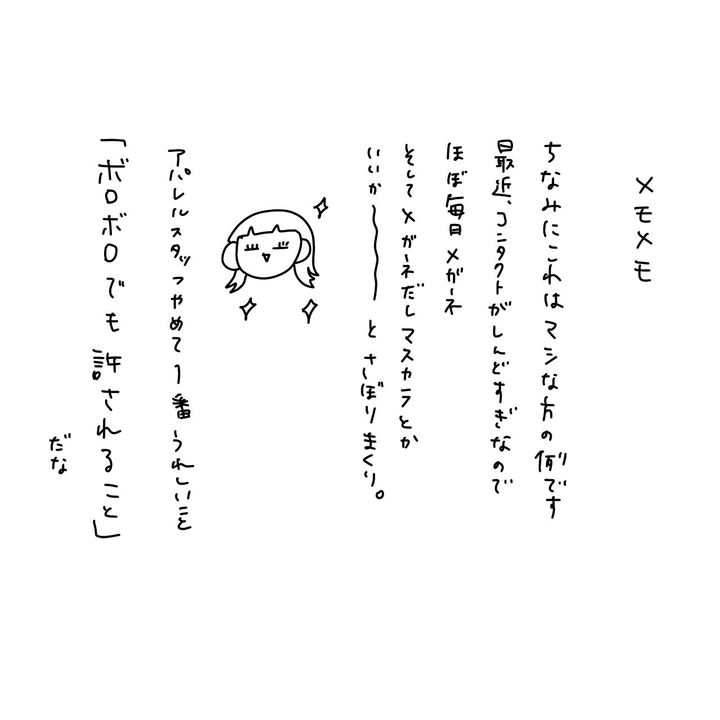 メモメモ
ちなみにこれはマシな方の例です
最近、コンタクトがしんどすぎなので
ほぼ毎日メガーネ
そしてメガーネだしマスカラとか
いいか〜〜〜とさぼりまくり。
アパレルスタッフやめて1番うれしいこと
「ボロボロでも許されること」
だな